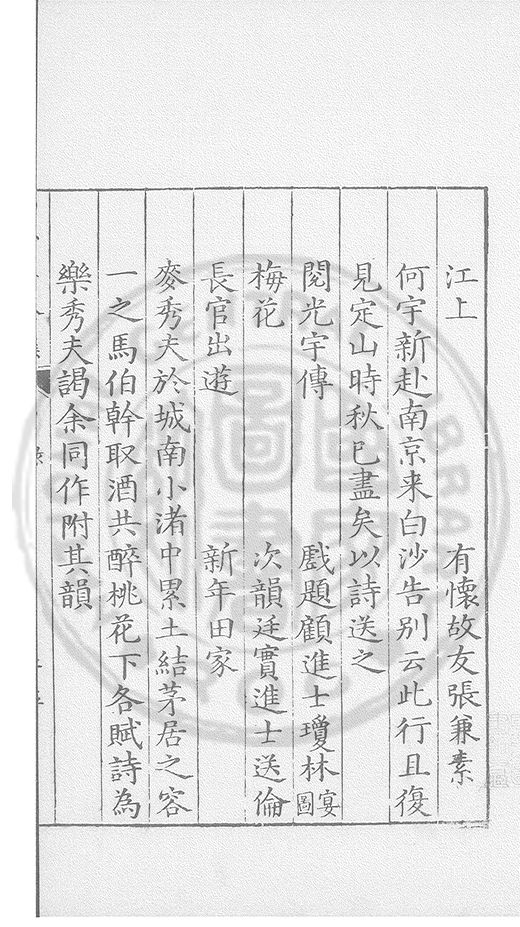 江上　有懷故友張兼素
何宇新赴南京来白沙告别云此行且復
見定山時秋已盡矣以詩送之
閱光宇傳　戲題顧進士瓊林宴圖
梅花　次韻廷實進士送倫
長官出遊　新年田家
麥秀夫於城南小渚中累土結茅居之容
一之馬伯幹取酒共醉桃花下各賦詩為
樂秀夫謁余同作附其韻